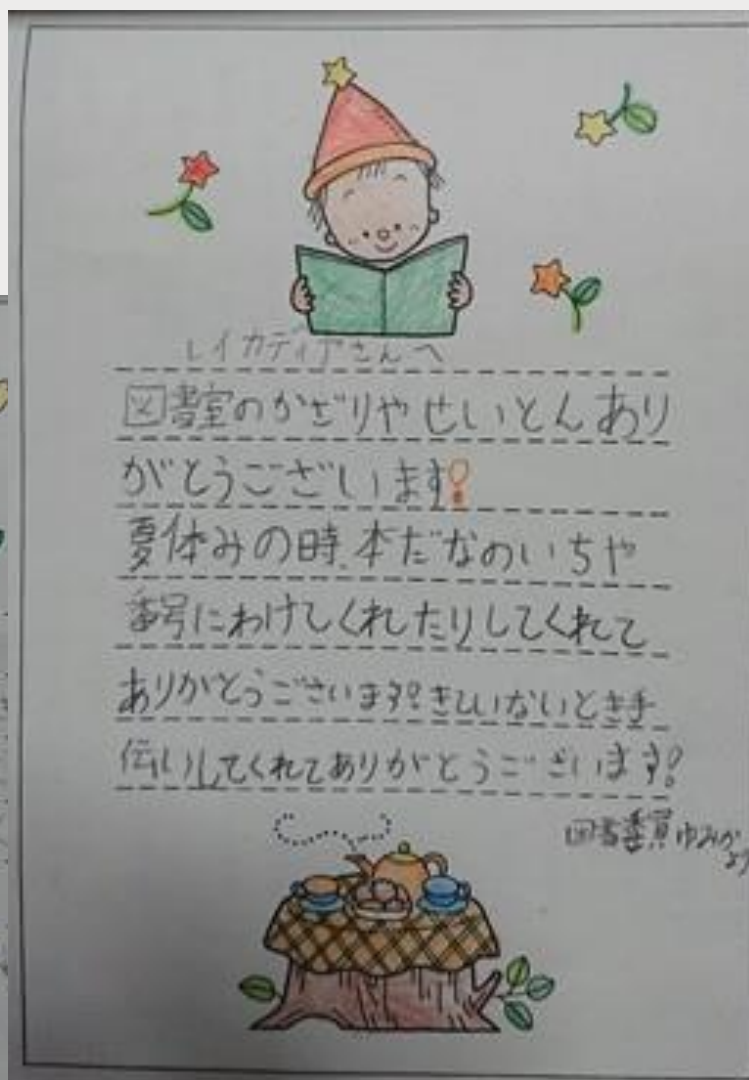 レイカディアさんへ
図書室のかざりやせいとんあり
がとうございます!
夏休みの時、本だなのいちや
番号にわけてくれたりしてくれて
ありがとうございます!
いないとき手
伝いしてくれてありがとうございます!
図書委員ゆみか
より